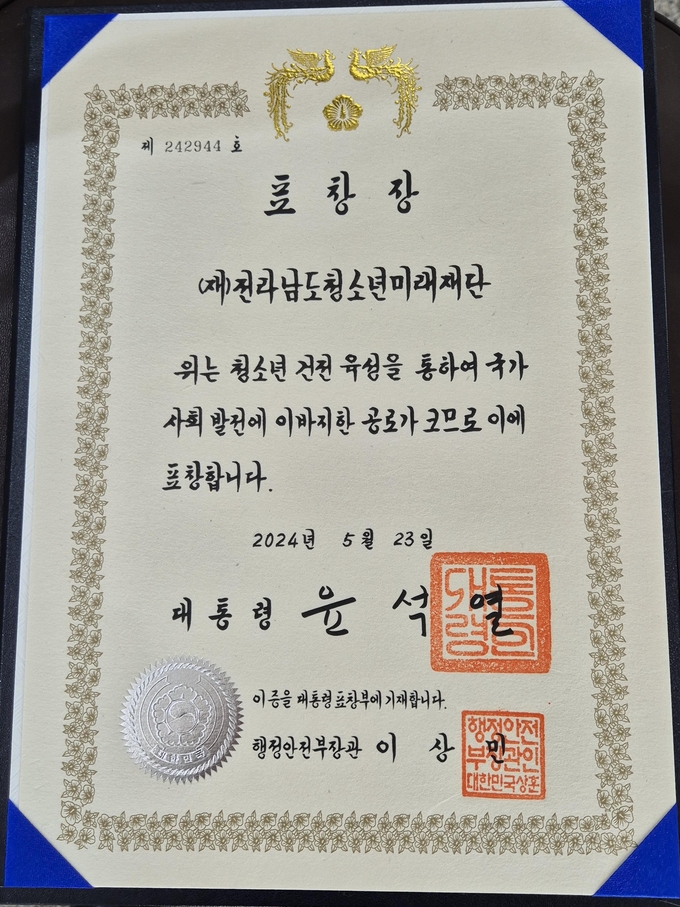 제 242944 호
표 창 장
(재)전라남도청소년미래재단
위는 청소년 건전 육성을 통하여 국가
사회 발전에 이바지한 공로가 크므로 이에
표창합니다.
2024년 5월 23일
대통령 윤 석 열
대통
령의
이 증을 대통령표창부에 기재합니다.
행정안전부장관 이 상 민
행정안전
부장관인
대한민국상훈
대한민국